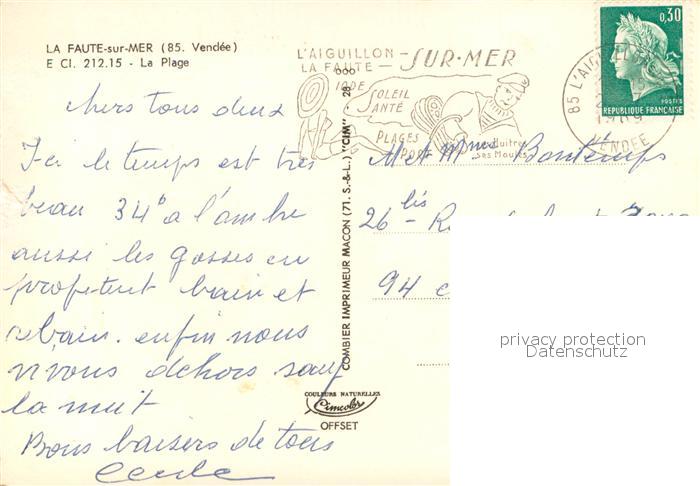 LA FAUTE-sur-MER (85. Vendée)
E CI. 212.15 - La Plage
chers tous deux
Ici le temps est très
beau 34° a l'ombre
aussi les gosses en
profitent bain et
rebain. enfin nous
vivons dehors sauf
la nuit
Bons baisers de tous
Cecile
COMBIER IMPRIMEUR MACON (71. S.-&-L.) "CIM"
COULEURS NATURELLES
Cimcolor
OFFSET
L'AIGUILLON - SUR-MER
LA FAUTE -
IODE
SOLEIL
SANTÉ
PLAGES
PORT
Ses Moules
85 L'AIGUILLON
VENDEE
0,30
POSTES
REPUBLIQUE FRANÇAISE
M et Mme Bontemps
26 bis
94
privacy protection
Datenschutz